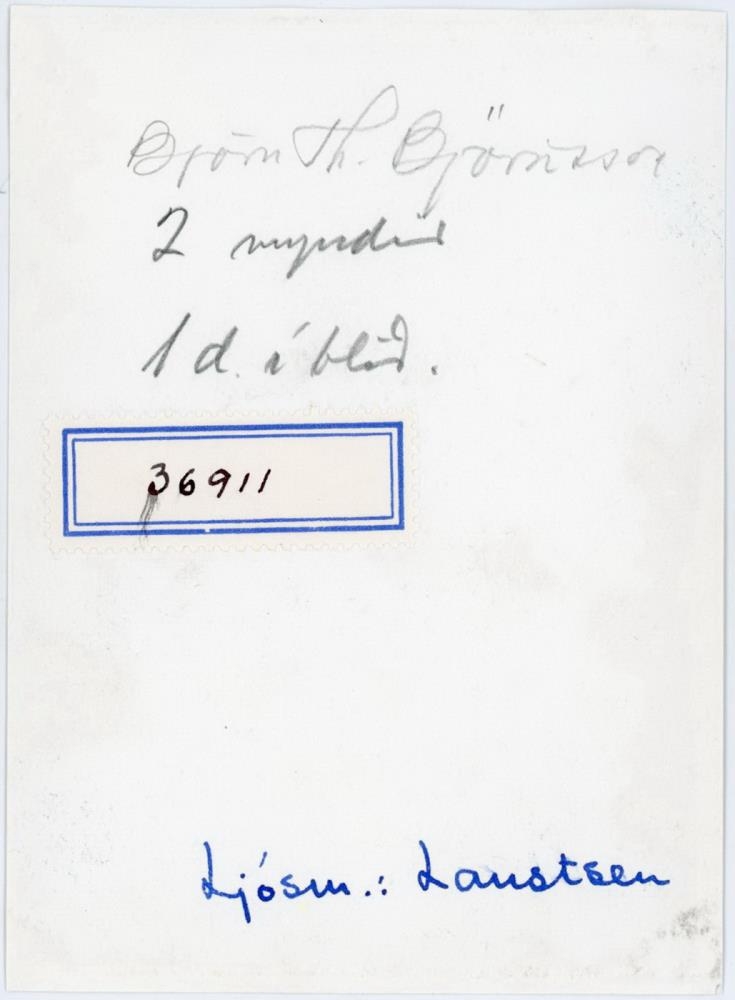 Björn Th. Björnsson
2 myndir
1 d. í blið.
36911
Ljósm.: Laustsen